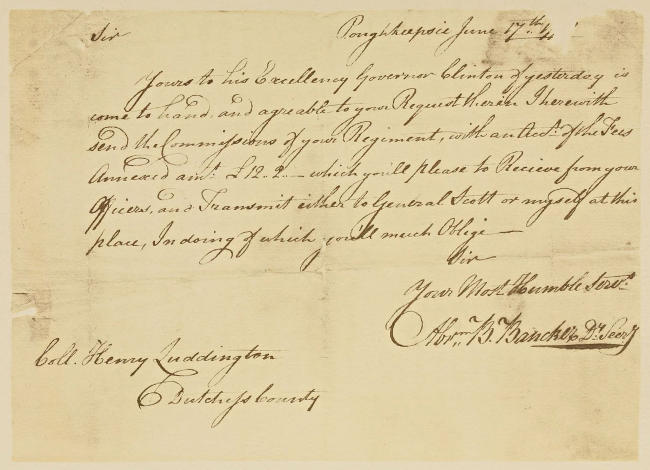 Sir
Poughkeepsie June 17th
Yours to his Excellency Governor Clinton of yesterday is
come to hand, and agreable to your Request therein I herewith
send the Commissions of your Regiment, with an Acct. of the Fees
Annexed amt. £12..2..— which you'll please to Recieve from your
Officers, and Transmit either to General Scott or myself at this
place, In doing of which you'll much Oblige —
Sir
Your Most Humble Servt.
Abrm. B. Bancker Dy. Secry
Coll. Henry Luddington
Dutchess County